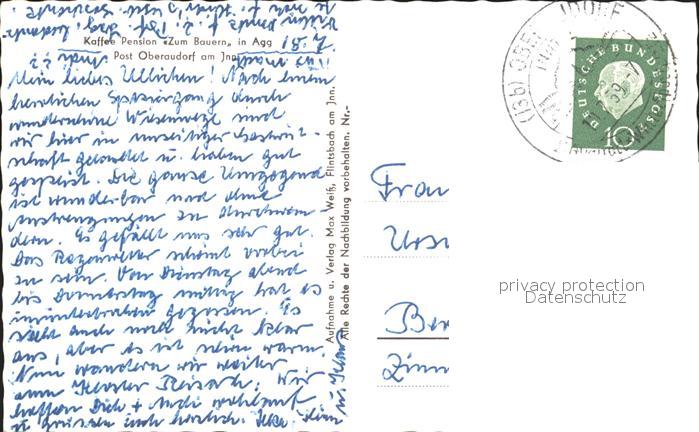 Kaffee Pension "Zum Bauern", in Agg
Post Oberaudorf am Jnn
Mein liebes Ullichen! Nach einem
herrlichen Spaziergang durch
wunderschöne Wiesenwege sind
wir hier in uriger
schaft gelandet u. haben gut
gespeist. Die ganze Umgegend
ist wunderbar und ohne
Anstrengungen zu durchwan-
dern. Es gefällt uns sehr gut.
Das Regenwetter scheint vorbei
zu sein. Von Dienstag abend
bis Donnerstag mittag hat es
ununterbrochen gegossen. Es
sieht auch noch nicht klar
aus, aber es ist schön warm.
Nun wandern wir weiter
zum Kloster Reisach. Wir
hoffen Dich + wohlauf
u. grüssen euch herzlich.
Aufnahme u. Verlag Max Weiß, Flintsbach am Jnn.
Alle Rechte der Nachbildung vorbehalten. Nr.-
DEUTSCHE BUNDESPOST
10
Frau
Urs
Ber
Zimm
privacy protection
Datenschutz